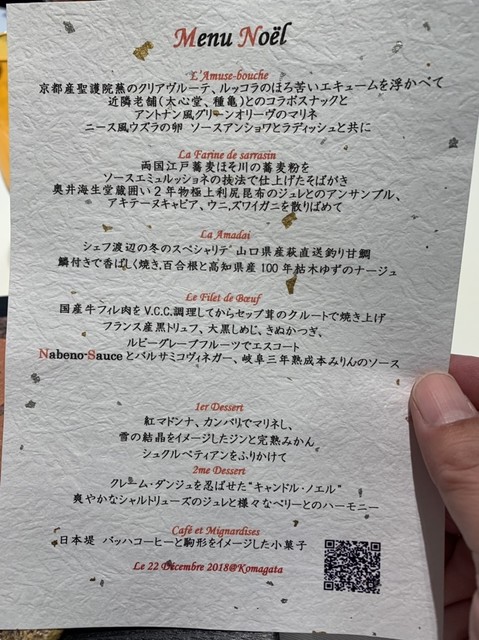 Menu Noël
L'Amuse-bouche
京都産聖護院蕪のクリアヴルーテ、ルッコラのほろ苦いエキュームを浮かべて
近隣老舗(太心堂、種亀)とのコラボスナックと
アントナン風グリーンオリーヴのマリネ
ニース風ウズラの卵 ソースアンショワとラディッシュと共に
La Farine de sarrasin
両国江戸蕎麦ほそ川の蕎麦粉を
ソースエミュルッショネの技法で仕上げたそばがき
奥井海生堂蔵囲い2年物極上利尻昆布のジュレとのアンサンブル、
アキテーヌキャビア、ウニ,ズワイガニを散りばめて
La Amadai
シェフ渡辺の冬のスペシャリテ 山口県産萩直送釣り甘鯛
鱗付きで香ばしく焼き,百合根と高知県産100年枯木ゆずのナージュ
Le Filet de Bœuf
国産牛フィレ肉をV.C.C.調理してからセップ茸のクルートで焼き上げ
フランス産黒トリュフ、大黒しめじ、きぬかつぎ、
ルビーグレープフルーツでエスコート
Nabeno-Sauceとバルサミコヴィネガー、岐阜三年熟成本みりんのソース
1er Dessert
紅マドンナ、カンパリでマリネし、
雪の結晶をイメージしたジンと完熟みかん
シュクルペティアンをふりかけて
2me Dessert
クレーム・ダンジュを忍ばせた"キャンドル・ノエル"
爽やかなシャルトリューズのジュレと様々なベリーとのハーモニー
Cafè et Mignardises
日本堤 バッハコーヒーと駒形をイメージした小菓子
Le 22 Dicembre 2018@Komagata